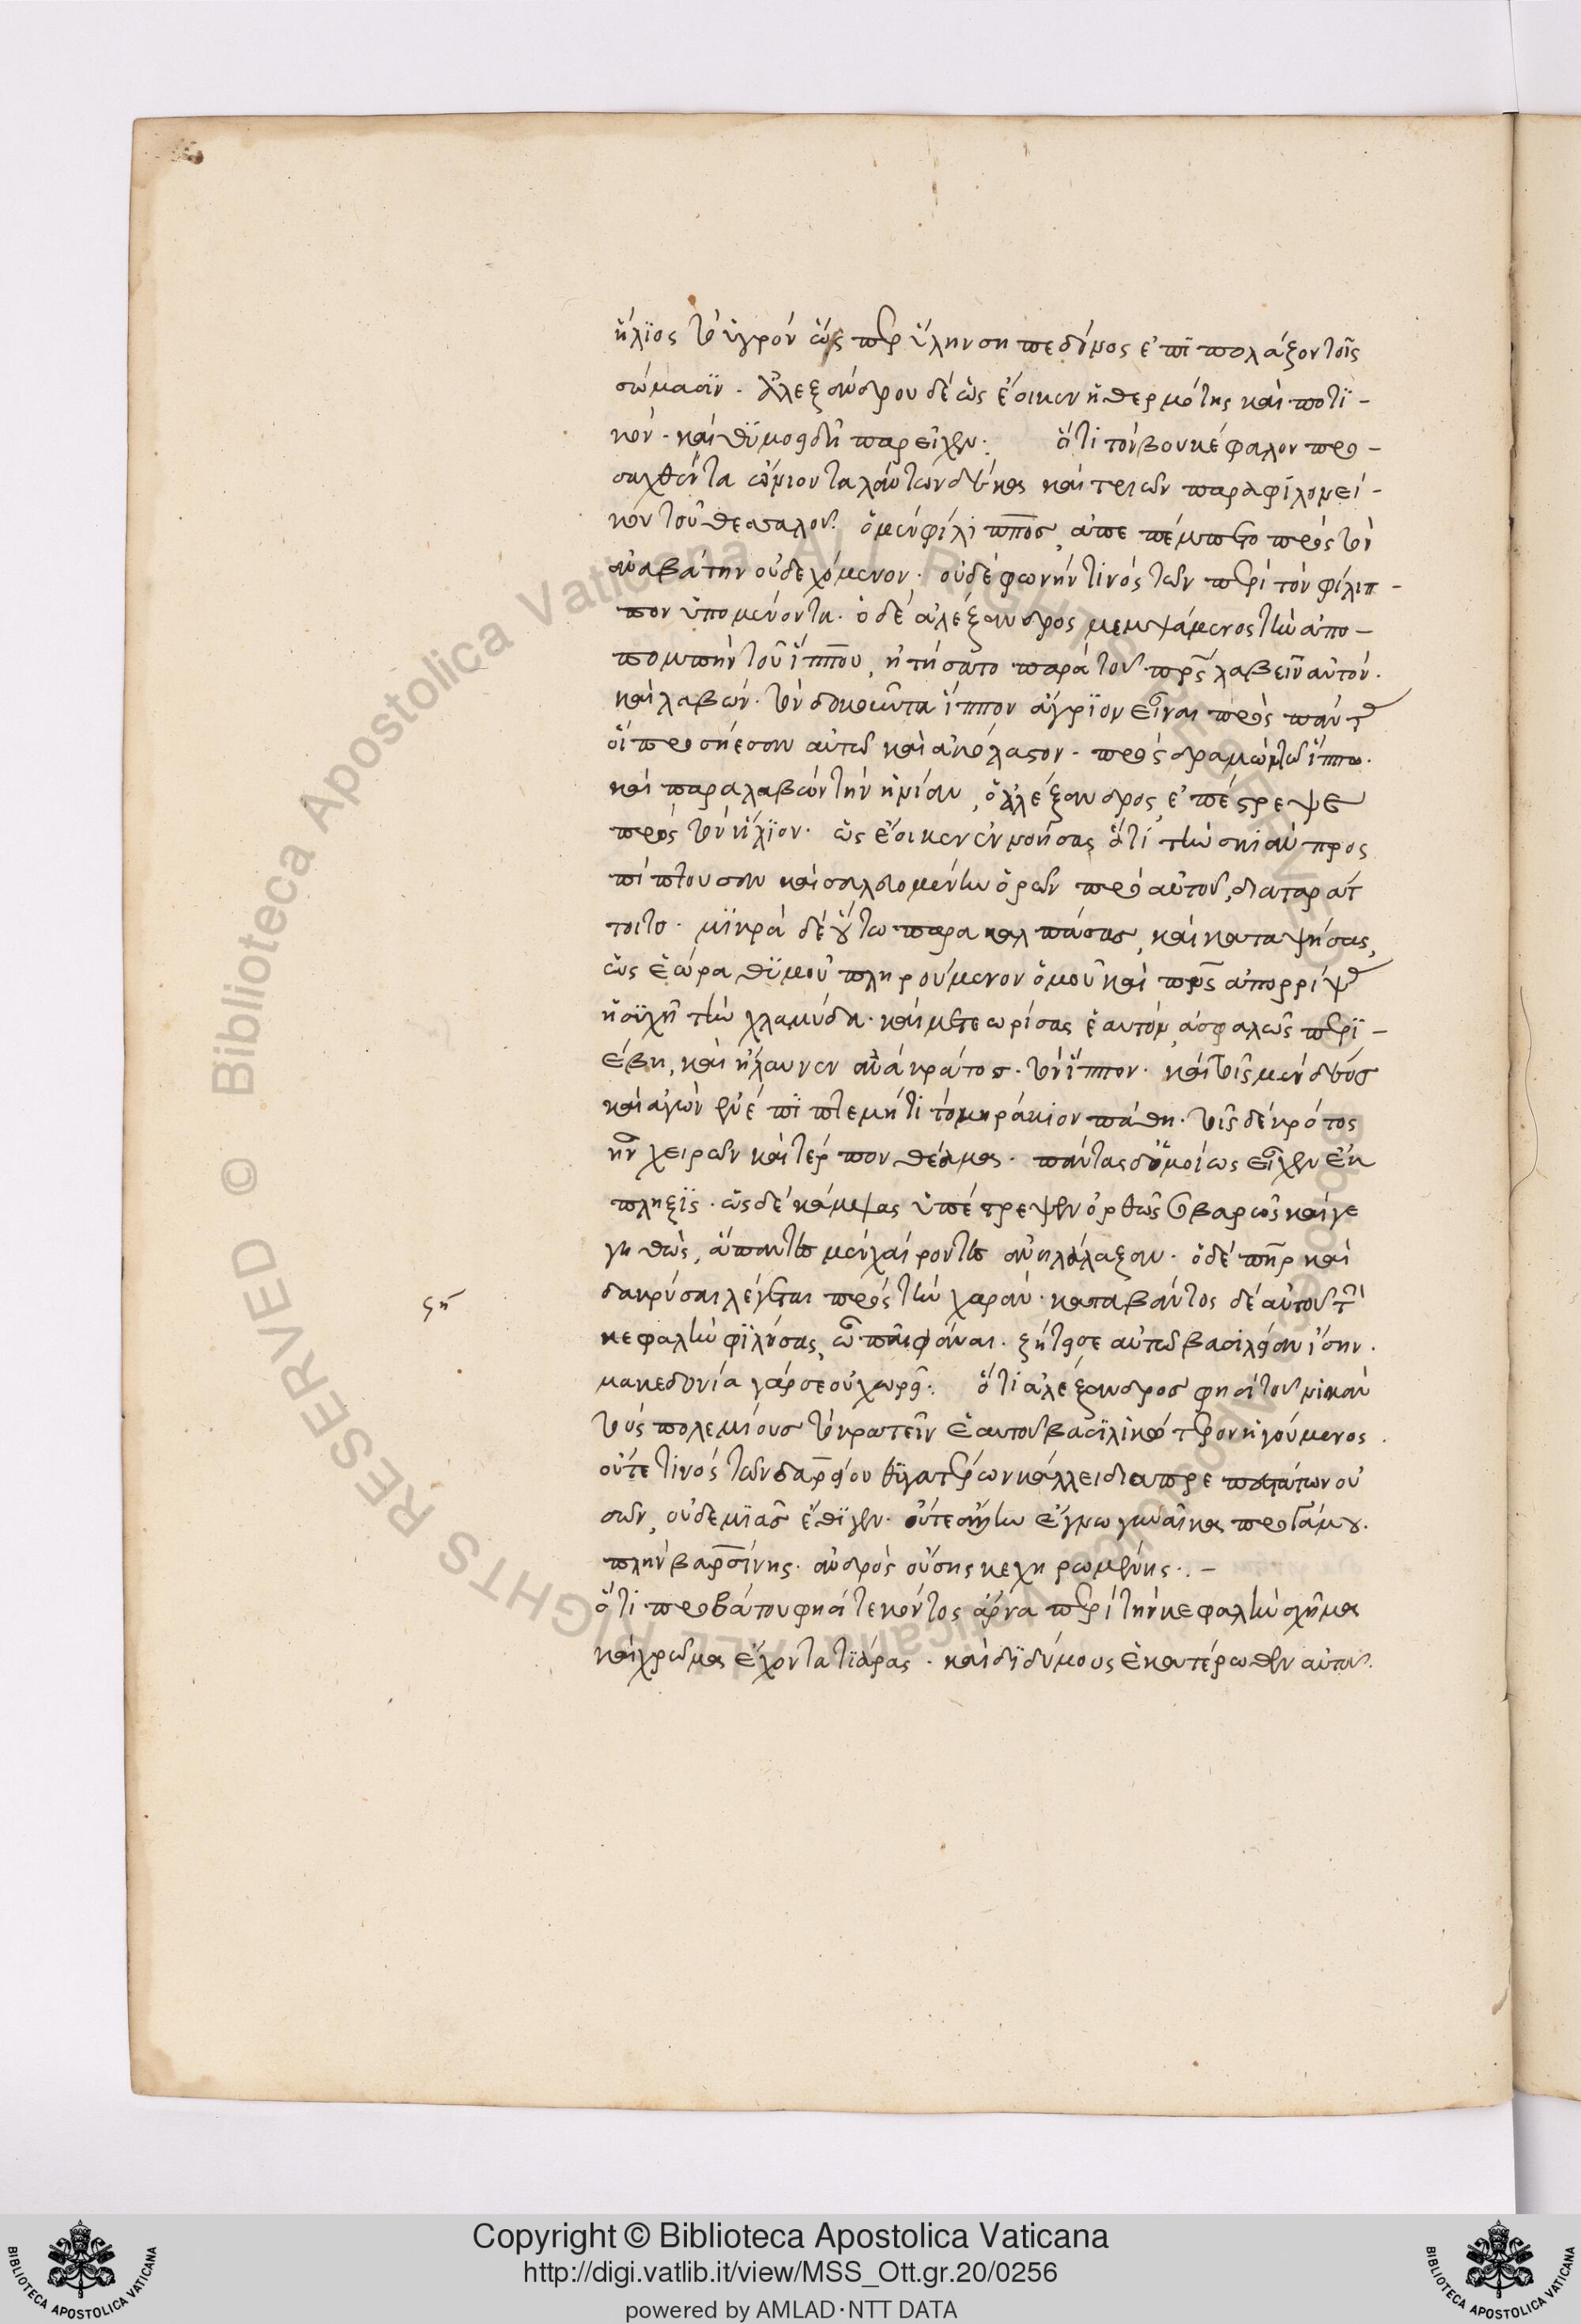 ἥλϊος τὸ ὑγρόν ὥσπερ ὕλην σηπεδόνος ἐπϊπολάζον τοῖς
σώμασϊν. Ἀλεξάνδρου δὲ ὡς ἔοικεν ἡ θερμότης καὶ ποτϊ-
κόν. καὶ θϋμοειδῆ παρεῖχεν: ὅτι τὸν βουκέφαλον προ-
σαχθέντα ὤνιον ταλάντων δέκα καὶ τριῶν παρὰ φιλονεί-
κου τοῦ θεσσαλοῦ. ὁ μὲν φίλιππος, ἀπεπέμπετο πρὸς τὸν
ἀναβάτην οὐ δεχόμενον. οὐδὲ φωνήν τινός τῶν περὶ τὸν φίλιπ-
πον ὑπομένοντα. ὁ δὲ ἀλέξανδρος μεμψάμενος τὴν ἀπο-
πομπὴν τοῦ ἵππου, ᾐτήσατο παρὰ τοῦ πρς λαβεῖν αὐτόν.
καὶ λαβών. τὸν δοκοῦντα ἵππον ἄγρϊον εἶναι πρὸς πάντας
οἳ προσήεσαν αὐτῶ καὶ ἀκόλαστον. προσδραμὼν τῶ ἵππω.
καὶ παραλαβών τὴν ἡνίαν, ὁ ἀλέξανδρος, ἐπέστρεψε
πρὸς τὸν ἥλϊον. ὡς ἔοικεν ἐννοήσας ὅτι τὴν σκιὰν προσ
πίπτουσαν καὶ σαλευομένην ὁρῶν πρὸ αὐτοῦ, διαταράτ
τοιτο. μϊκρὰ δὲ οὕτω παρακαλπάσας, καὶ καταψήσας,
ὡς ἑώρα θϋμοῦ πληρούμενον ὁμοῦ καὶ πνς ἀπορρίψας
ἡσϋχῆ τὴν χλαμύδα. καὶ μετεωρίσας ἑαυτόν, ἀσφαλῶς περϊ-
έβη, καὶ ἤλαυνεν ἀνὰ κράτος. τὸν ἵππον. καὶ τοῖς μὲν δέος
καὶ ἀγὼν ἐνέπϊπτε μή τι τὸ μειράκιον πάθη. τοῖς δὲ κρότος
ἦν χειρῶν καὶ τερπον θέαμα. πάντας δ' ὁμοίως εἶχεν ἔκ
πληξϊς. ὡς δὲ κάμψας ὑπέστρεψεν ὀρθῶς σοβαρῶς καὶ γε
γηθὼς, ἅπαντες μὲν χαίροντες ἀνηλάλαξαν. ὁ δὲ πηρ καὶ
δακρύσαι λέγεται πρὸς τὴν χαράν. καταβάντος δὲ αὐτοῦ τὴν
ση
κεφαλὴν φϊλήσας, ὦ παῖ φάναι. ζήτει σε αὐτῶ βασιλείαν ἴσην.
μακεδονία γάρ σε οὐ χωρεῖ: ὅτι ἀλέξανδρος φησὶ τοῦ νικᾶν
τοὺς πολεμίους τὸ κρατεῖν ἑαυτοῦ βασϊλικότερον ἡγούμενος.
οὔτε τινός τῶν δαρείου θϋγατέρων κάλλει διαπρεπεστάτων οὐ
σῶν, οὐδεμϊᾶς ἔθϊγεν. οὔτε ἄλλην ἔγνω γυναῖκα πρὸ γάμου.
πλὴν βαρσίνης. ἀνδρὸς οὔσης κεχηρωμένης. –
ὅτι προβάτου φησὶ τεκόντος ἄρνα περὶ τὴν κεφαλὴν σχῆμα
καὶ χρῶμα ἔχοντα τϊάρας. καὶ δϊδύμους ἑκατέρωθεν αὐτοῦ.
Copyright © Biblioteca Apostolica Vaticana
http://digi.vatlib.it/view/MSS_Ott.gr.20/0256
powered by AMLAD·NTT DATA
BIBLIOTECA APOSTOLICA VATICANA
BIBLIOTECA APOSTOLICA VATICANA
© Biblioteca Apostolica Vaticana ALL RIGHTS RESERVED
© Biblioteca Apostolica Vaticana ALL RIGHTS RESERVED